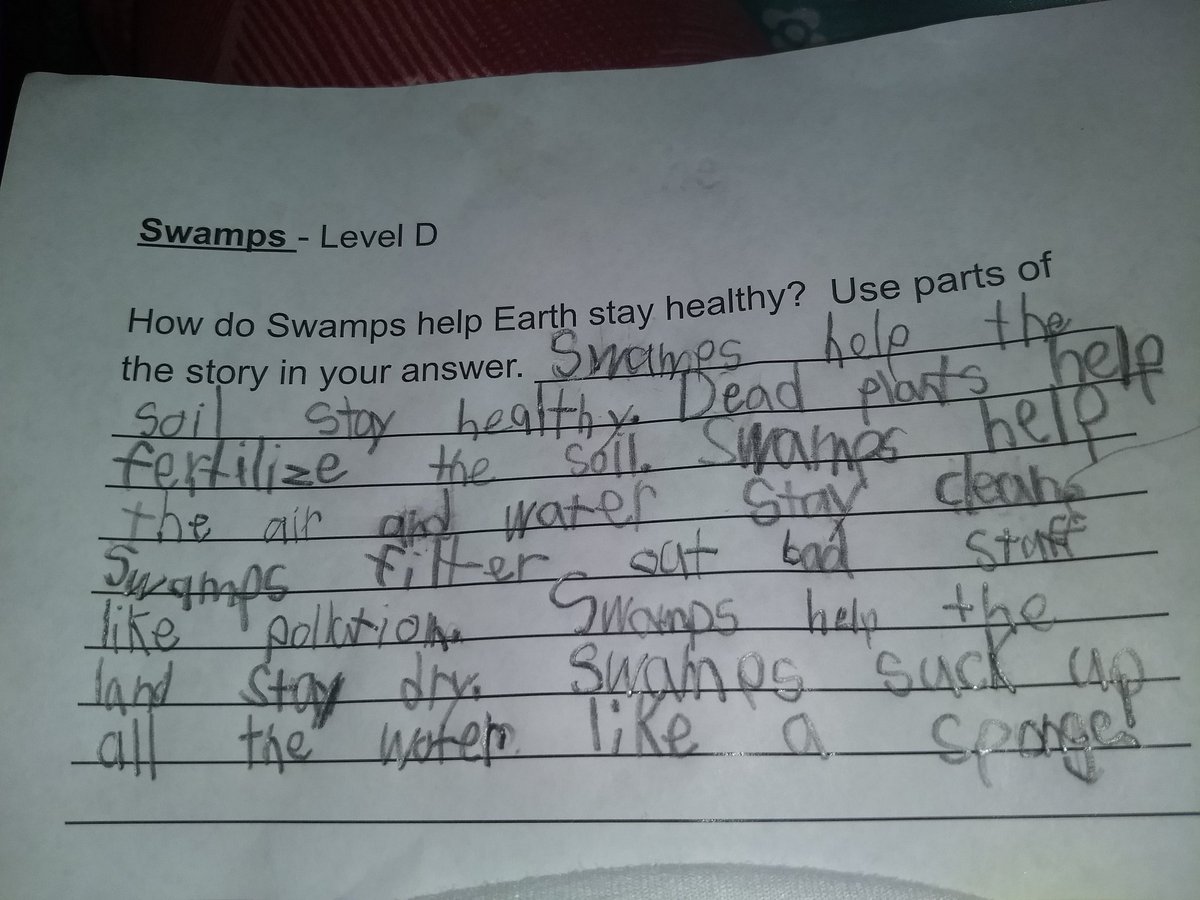 Swamps - Level D
How do Swamps help Earth stay healthy? Use parts of
the story in your answer. Swamps help the
soil stay healthy. Dead plants help
fertilize the soil. Swamps help
the air and water stay clean.
Swamps filter out bad stuff
like pollution. Swamps help the
land stay dry. Swamps suck up
all the water like a sponge!